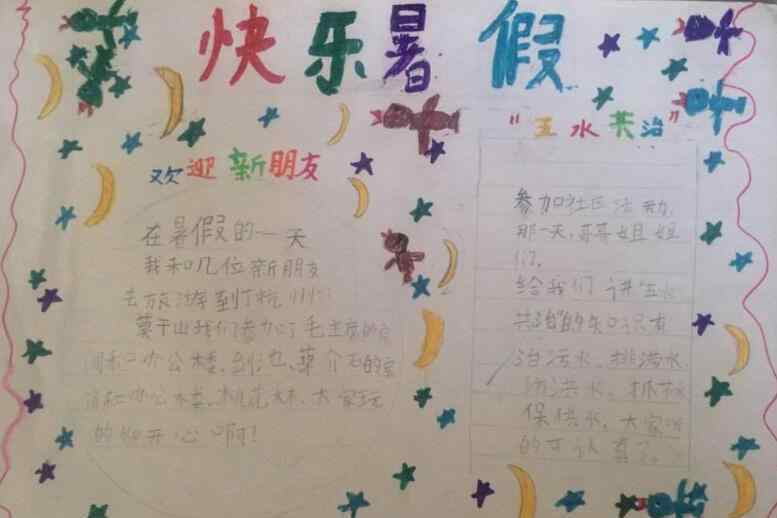 快乐暑假
欢迎新朋友
在暑假的一天
我和几位新朋友
去旅游到了杭州
莫干山我们参加了毛主席的房
间和办公楼、到
办公楼、桃花林、大家玩
的如开心啊！
"五水共治"
参加社区活动，
那一天，哥哥姐姐
们，
给我们讲"五水
共治"的知识有
治污水、排涝水、
防洪水、抓节水
保供水，大家听
的可认真了。